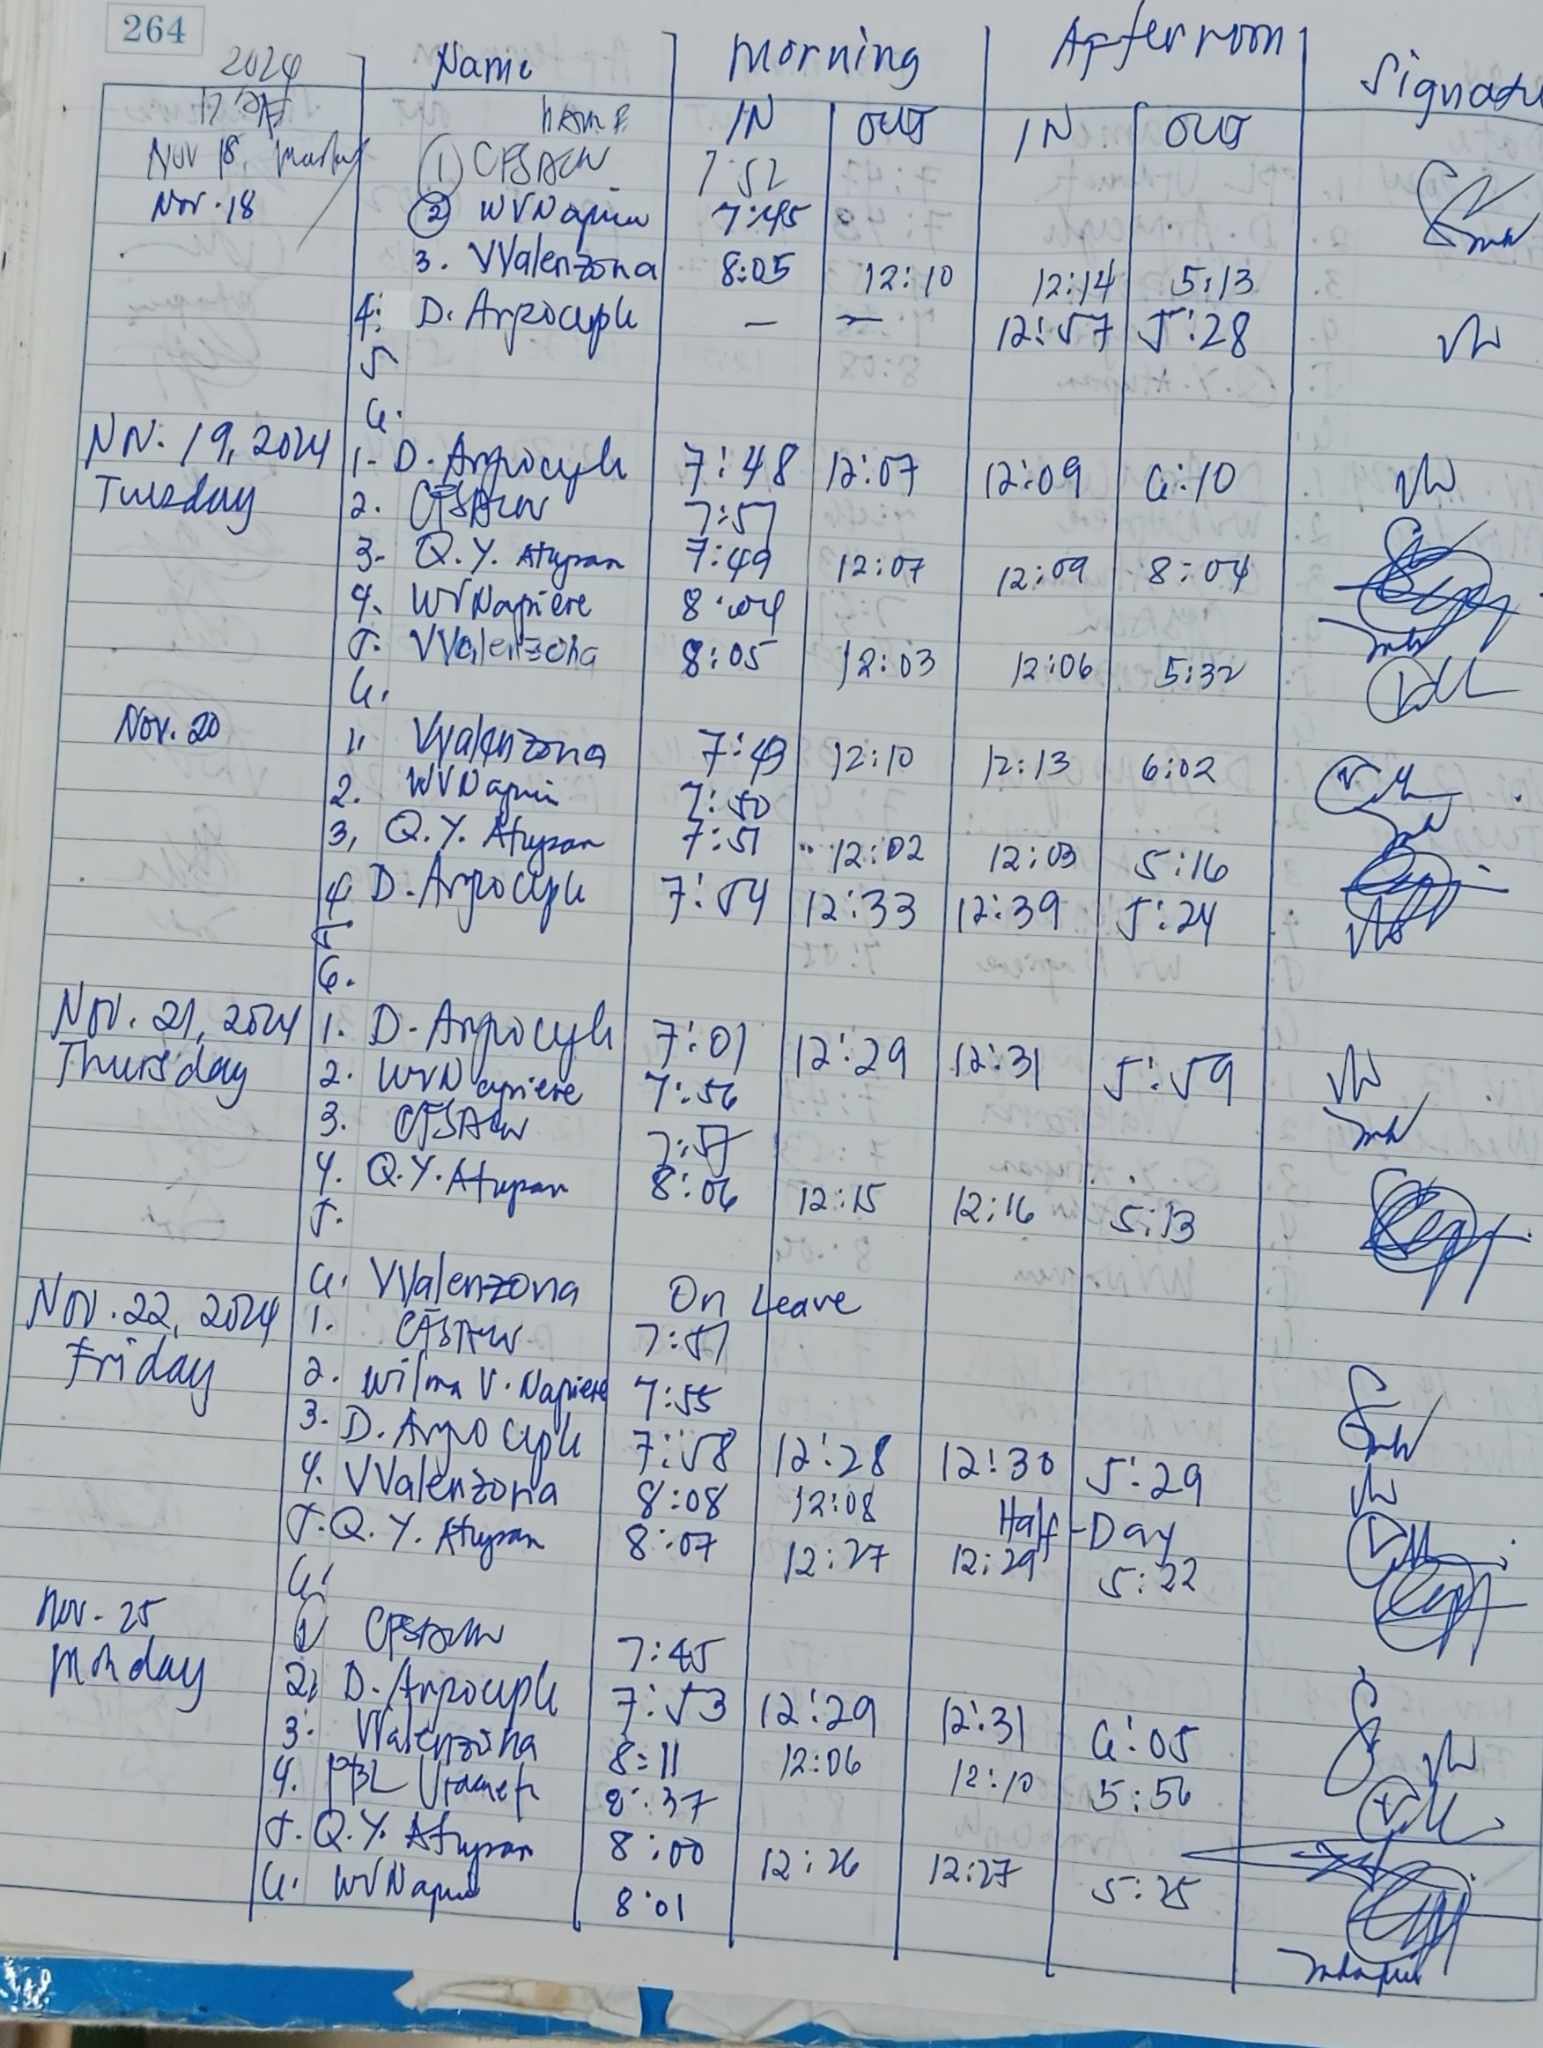 264
2024 Name Morning Apternoon Signatu
Name IN OUT IN OUT
Nov 18, 1 CFSAEW 7:52
Nov. 18 2 WVNapier 7:45
3. VValenzona 8:05 12:10 12:14 5:13
4. D. Arpocyple — — 12:57 5:28
5
6.
Nov. 19, 2024 1- D. Arpocyple 7:48 12:07 12:09 6:10
Tuesday 2. 7:57
3- Q.Y. Atupan 7:49 12:07 12:09 8:04
4. WVNapiere 8:04
5. VValenzona 8:05 12:03 12:06 5:32
6.
Nov. 20 1. VValenzona 7:43 12:10 12:13 6:02
2. WVNapier 7:50
3, Q.Y. Atupan 7:51 12:02 12:03 5:16
4 D. Arpocyple 7:54 12:33 12:39 5:24
5
6.
Nov. 21, 2024 1. D. Arpocyple 7:01 12:29 12:31 5:59
Thursday 2. WVNapiere 7:56
3. 7:57
4. Q.Y. Atupan 8:06 12:15 12:16 5:13
5.
6. VValenzona On Leave
Nov. 22, 2024 1. 7:57
Friday 2. Wilma V. Napiere 7:55
3. D. Arpocyple 7:58 12:28 12:30 5:29
4. VValenzona 8:08 12:08 Half-Day
5. Q.Y. Atupan 8:07 12:27 12:29 5:22
6.
Nov. 25 1 7:45
Monday 2. D. Arpocyple 7:53 12:29 12:31 6:05
3. VValenzona 8:11 12:06 12:10 5:56
4. 8:37
5. Q.Y. Atupan 8:00 12:26 12:27 5:25
6. WVNapier 8:01